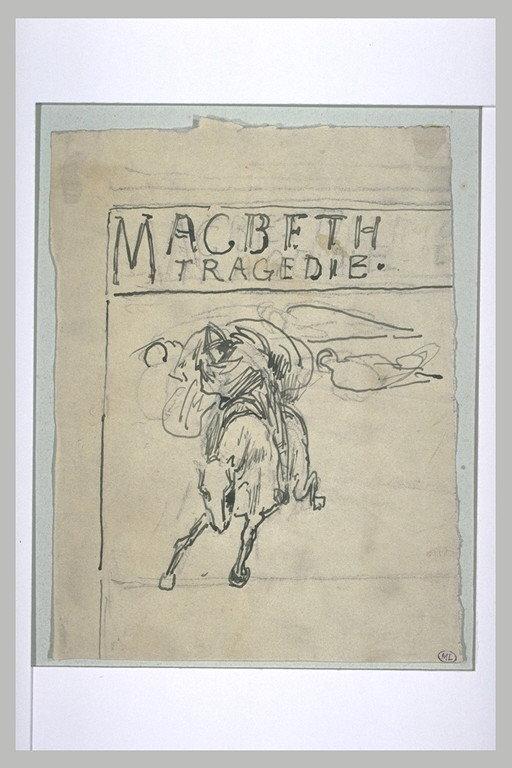 MACBETH
TRAGEDIE.
ML